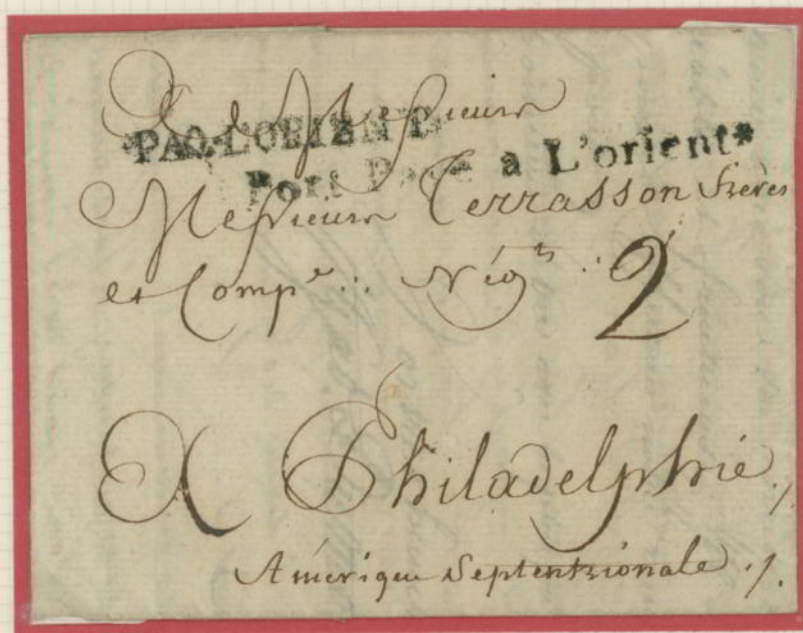 A Messieurs
PAQ. L'ORIENT.
Port Payé a L'orient*
Messieurs Terrasson Frères
et Compe. .. Négts. ..
2
A Philadelphie ./
Amérique Septentrionale ./.